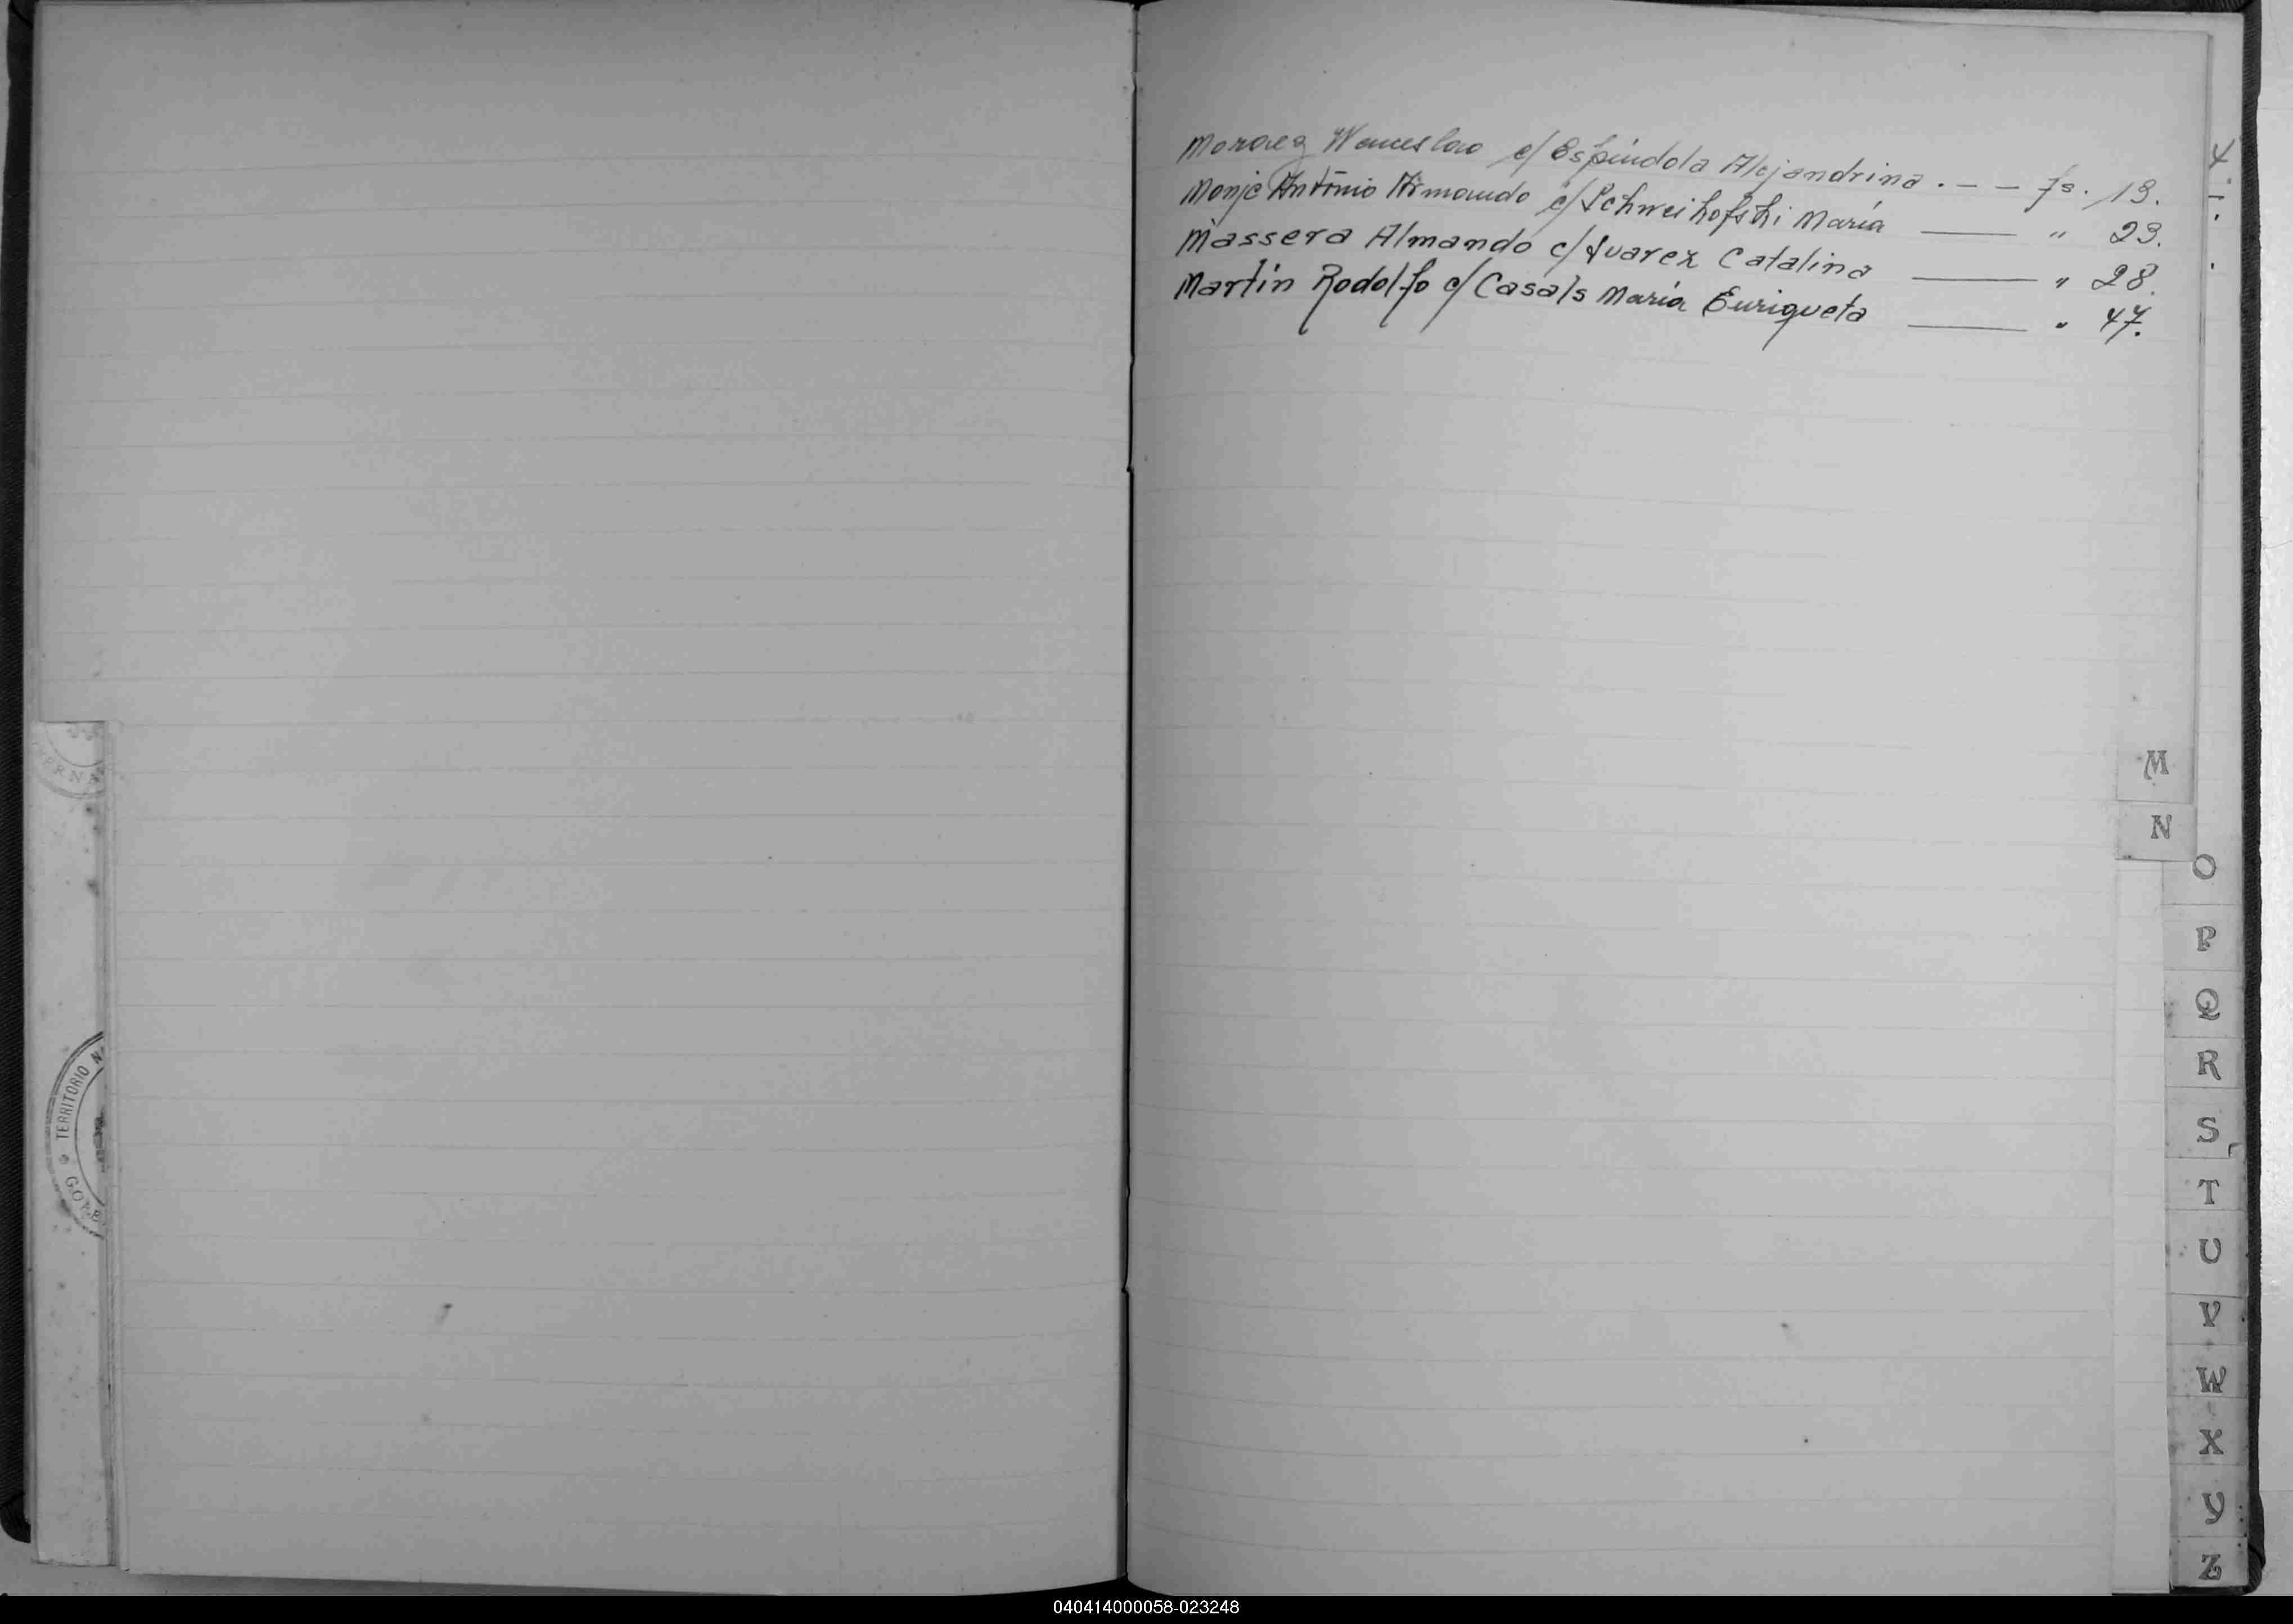 Moraez Wenceslao c/ Espíndola Alejandrina . — — fs. 13.
Monje Antonio Armando c/ Schweihofski María —— " 23.
Massera Almando c/ Suarez Catalina —— " 28.
Martín Rodolfo c/ Casals María Enriqueta —— " 47.
M
N
O
P
Q
R
S
T
U
V
W
X
Y
Z
TERRITORIO N
GOBE
ERNA
040414000058-023248